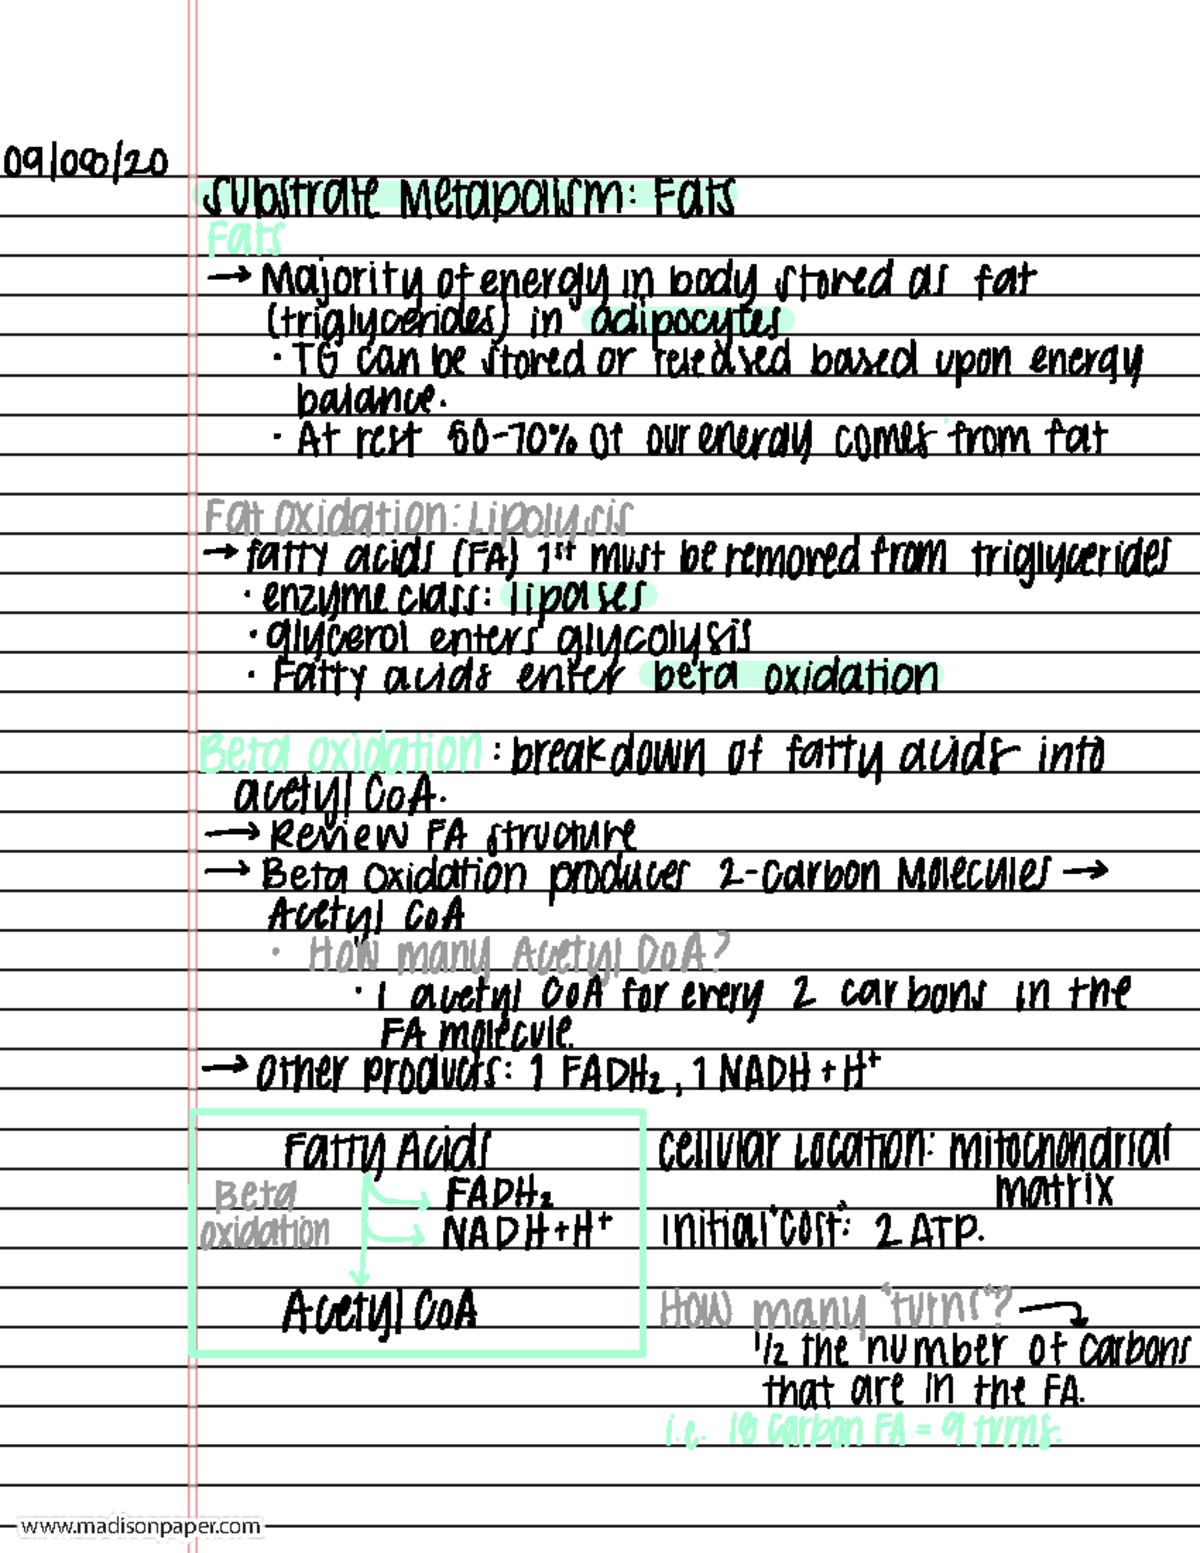 09/08/20
Substrate Metabolism: Fats
Fats
→ Majority of energy in body stored as fat
(triglycerides) in adipocytes
· TG can be stored or released based upon energy
balance.
· At rest 60-70% of our energy comes from fat
Fat oxidation: Lipolysis
→ fatty acids (FA) 1st must be removed from triglycerides
· enzyme class: lipases
· glycerol enters glycolysis
· Fatty acids enter beta oxidation
Beta oxidation: breakdown of fatty acids into
acetyl CoA.
→ Review FA structure
→ Beta oxidation produces 2-carbon Molecules →
Acetyl CoA
· How many Acetyl CoA?
· 1 acetyl CoA for every 2 carbons in the
FA molecule.
→ Other products: 1 FADH₂, 1 NADH + H⁺
Fatty Acids
Beta oxidation
FADH₂
NADH + H⁺
Acetyl CoA
Cellular Location: mitochondrial
matrix
Initial "cost": 2 ATP.
How many "turns"?
1/2 the number of carbons
that are in the FA.
i.e. 18 carbon FA = 9 turns.
www.madisonpaper.com